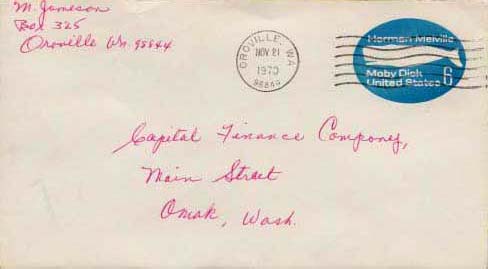 M. Jameson
Box 325
Oroville Wn. 98844
OROVILLE, WA
NOV 21
1970
98844
Herman Melville
Moby Dick
United States 6
Capital Finance Company,
Main Street
Omak, Wash.